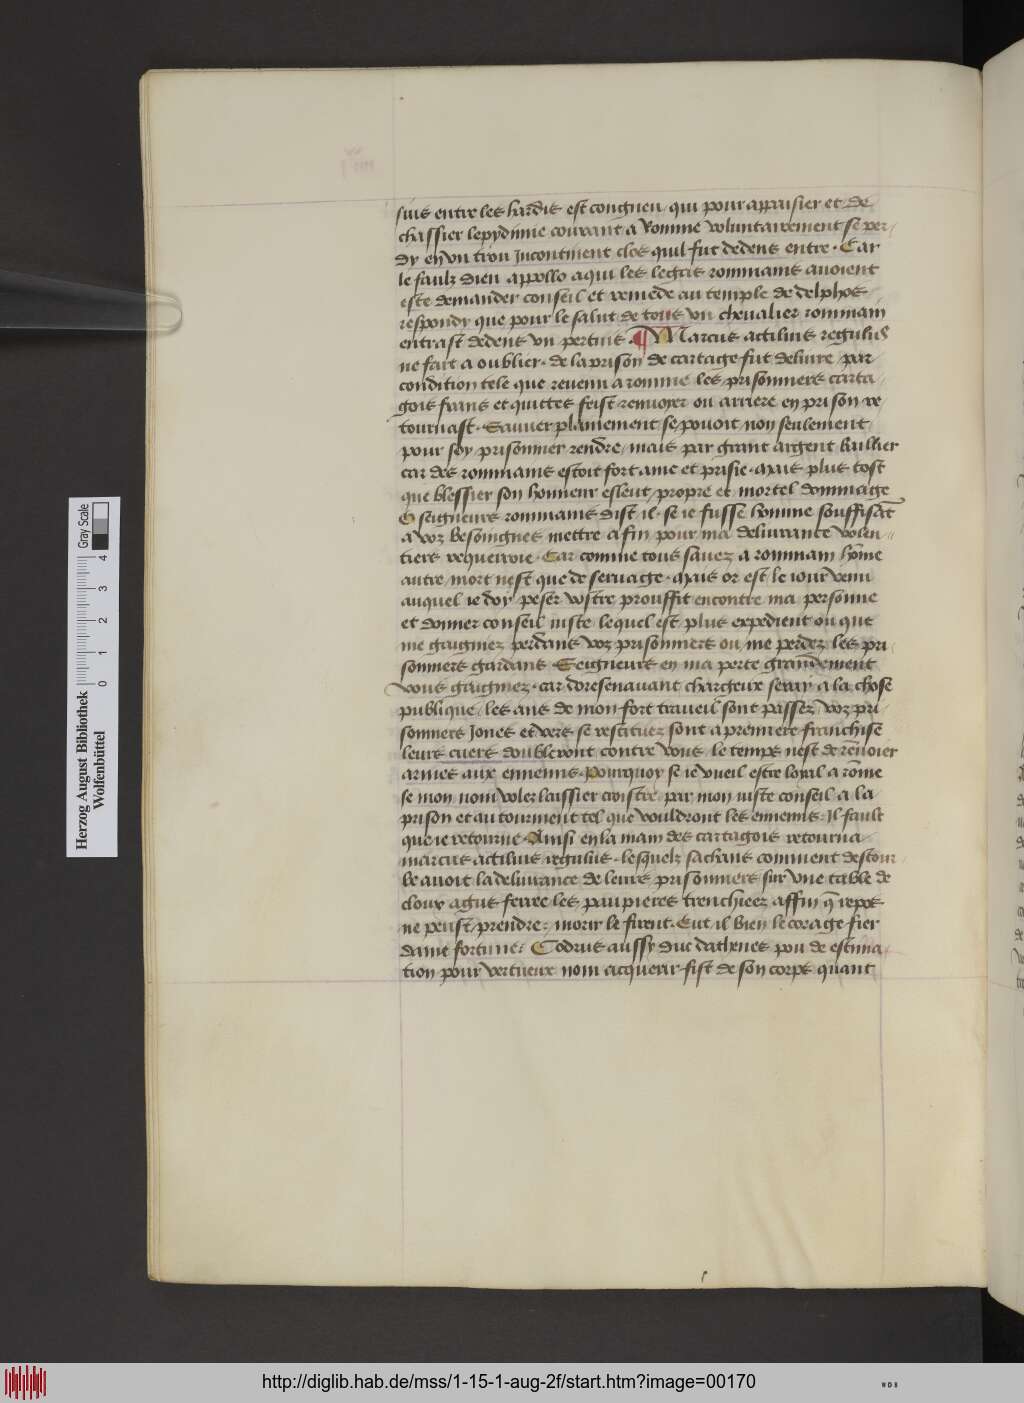 suis entre les hardis est congneu qui pour appaisier et de
chassier lepydimie courant a Romme voluntairement se per-
dy en vn trou Incontinent clos quil fut dedens entre. Car
le faulz dieu appollo a qui les legas rommains auoient
este demander conseil et remede au temple de delphos
respondy que pour le salut de tous vn chevalier rommain
entrast dedens vn pertuis. ¶ Marcus actilius regulus
ne fait a oublier. de la prison de cartage fut deliure par
condition tele que reuenu a romme les prisonniers carta-
gois frans et quittes feist renuoyer ou arriere en prison re
tournast. Sauuer plainement se pouoit non seulement
pour soy prisonnier rendre, mais par grant argent baillier
car des rommains estoit fort ame et prisie. mais plus tost
que blessier son honneur esleut propre et mortel dommage
O seigneurs rommains dist il. se ie fusse homme souffisāt
a voz besoingnes mettre a fin pour ma deliurance volen-
tiers requerroie. Car comme tous sauez a rommain hōme
autre mort nest que de seruage. mais or est le iour venu
auquel ie doy peser vostre prouffit encontre ma personne
et donner conseil iuste lequel est plus expedient ou que
me gaigniez perdans voz prisonniers ou me perdez les pri-
sonniers gardans. Seigneurs en ma perte grandement
vous gaigniez. car doresenauant chargeux seray a la chose
publique, les ans de mon fort traueil sont passez, voz pri-
sonniers Jones et vers se restituez sont a premiere franchise
leurs cuers doubleront contre vous. le temps nest de rēuoier
armes aux ennemis. Pourquoy se ie vueil estre loyal a rōme
se mon nom volez laissier croistre par mon iuste conseil a la
prison et au tourment tel que vouldront les ennemis. Il fault
que ie retourne. Ainsi en la main des cartagois retourna
marcus actilius regulus. lesquelz sachans comment destour-
be auoit la deliurance de leurs prisonniers sur vne table de
cloux agus ferree les paupieres trenchiees affin q̄ repos
ne peust prendre, morir le firent. Eut il bien le corage fier
dame fortune. Codrus aussy duc dathenes pou de estima-
tion pour vertueux nom acquerir fist de son corps quant
Herzog August Bibliothek
Wolfenbüttel
Gray Scale
0 1 2 3 4
http://diglib.hab.de/mss/1-15-1-aug-2f/start.htm?image=00170